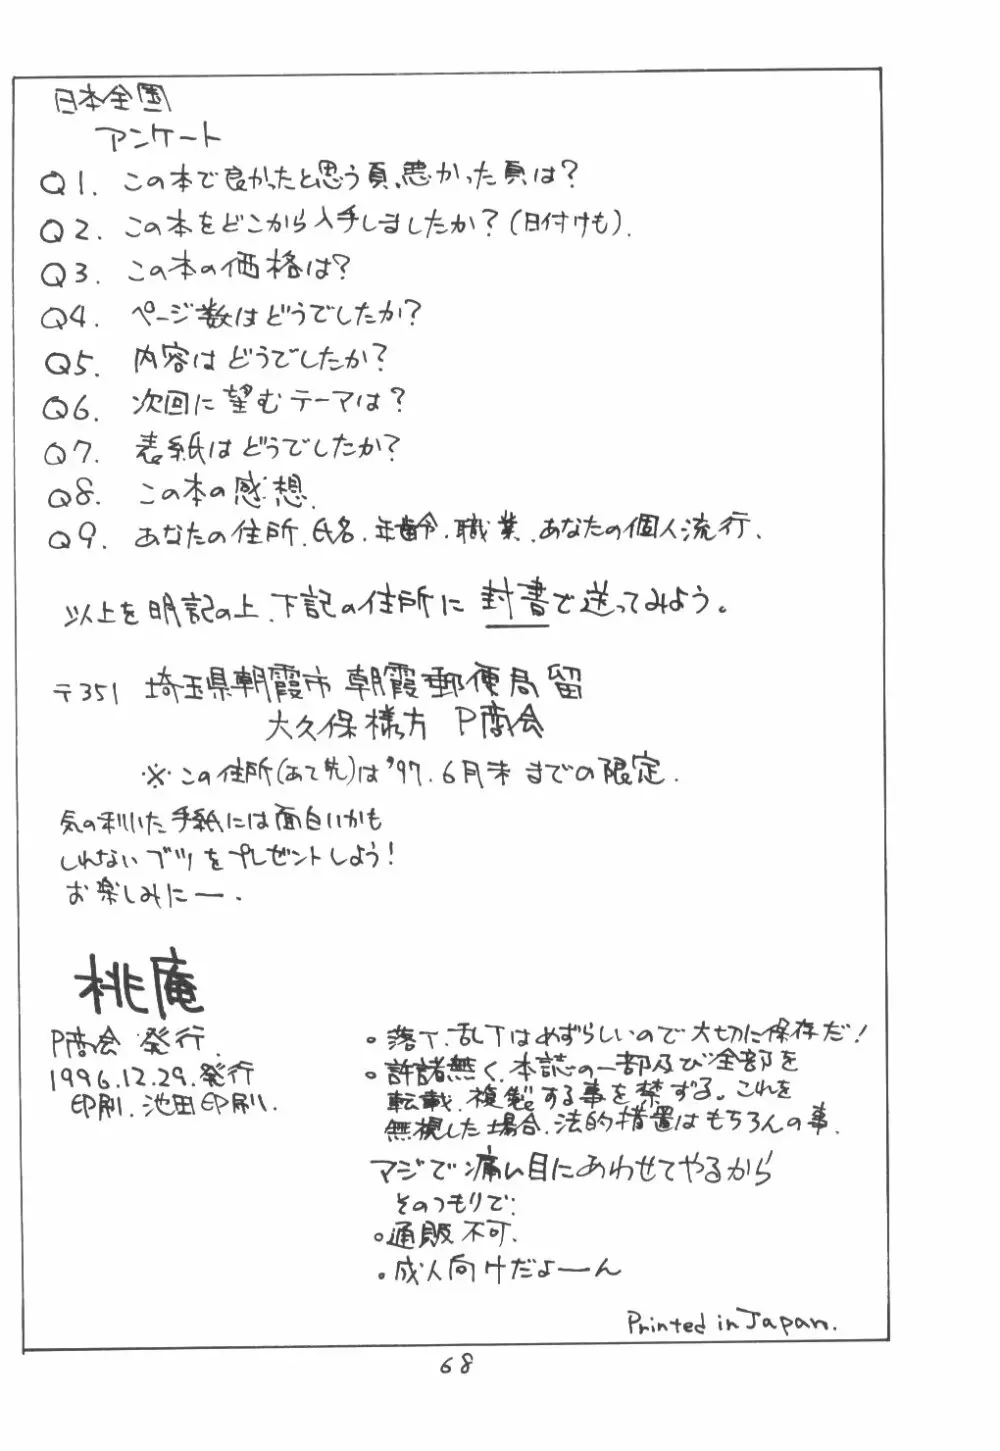 日本全国
アンケート
Q1. この本で良かったと思う頁、悪かった頁は?
Q2. この本をどこから入手しましたか?(日付けも).
Q3. この本の価格は?
Q4. ページ数はどうでしたか?
Q5. 内容はどうでしたか?
Q6. 次回に望むテーマは?
Q7. 表紙はどうでしたか?
Q8. この本の感想.
Q9. あなたの住所.氏名.年齢.職業.あなたの個人流行.
以上を明記の上、下記の住所に封書で送ってみよう。
〒351 埼玉県朝霞市朝霞郵便局留
大久保様方 P商会
※この住所(あて先)は'97.6月末までの限定.
気の利いた手紙には面白いかも
しれないブツをプレゼントしよう!
お楽しみにー.
桃庵
P商会 発行.
1996.12.29.発行
印刷.池田印刷.
○落丁、乱丁はめずらしいので大切に保存だ!
○許諾無く、本誌の一部及び全部を
転載、複製する事を禁ずる。これを
無視した場合、法的措置はもちろんの事.
マジで痛い目にあわせてやるから
そのつもりで:
○通販不可.
○成人向けだよーん
Printed in Japan.
68